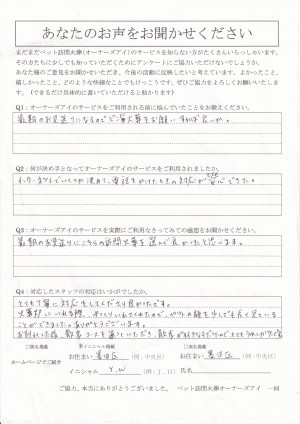 あなたのお声をお聞かせください
まだまだペット訪問火葬(オーナーズアイ)のサービスを知らない方がたくさんいらっしゃいます。
その方たちに少しでも知っていただくためにアンケートにご協力いただけないでしょうか。
あなた様のご意見をお聞かせいただき、今後の活動に反映したいと考えています。よかったこと、
嬉しかったこと、どのような些細なことでもけっこうです。ぜひご協力をよろしくお願いいたしま
す。(できるだけ具体的に書いていただけると助かります)
Q1:オーナーズアイのサービスをご利用される前に悩んでいたことをお教えください。
最期のお見送りになるのでどこで火葬をお願いすれば良いか。
Q2:何が決め手となってオーナーズアイのサービスをご利用されましたか。
インターネットでいくつか決めて、電話をかけたときの対応が安心できた。
Q3:オーナーズアイのサービスを実際にご利用なさってみての感想をお聞かせください。
最期のお見送りにこちらの訪問火葬を選んで良かったと思います。
Q4:対応したスタッフの対応はいかがでしたか。
とても丁寧に対応をしてくださり良かったです。
火葬炉にいれる際、ゆっくりいれてくれたので、ペットの顔を少しでも長く見ている
ことができました。ありがとうございます。
お別れした後、散歩コースを通っていただき、散歩が好きな子だったので
□実名掲載 イニシャル掲載 □実名掲載
ホームページでご紹介 お住まい 豊田区 (例:中央区) お住まい 豊田区 (例:中央区)
イニシャル Y.W (例:J.H) 氏名
ご協力、本当にありがとうございました。 ペット訪問火葬オーナーズアイ 一同